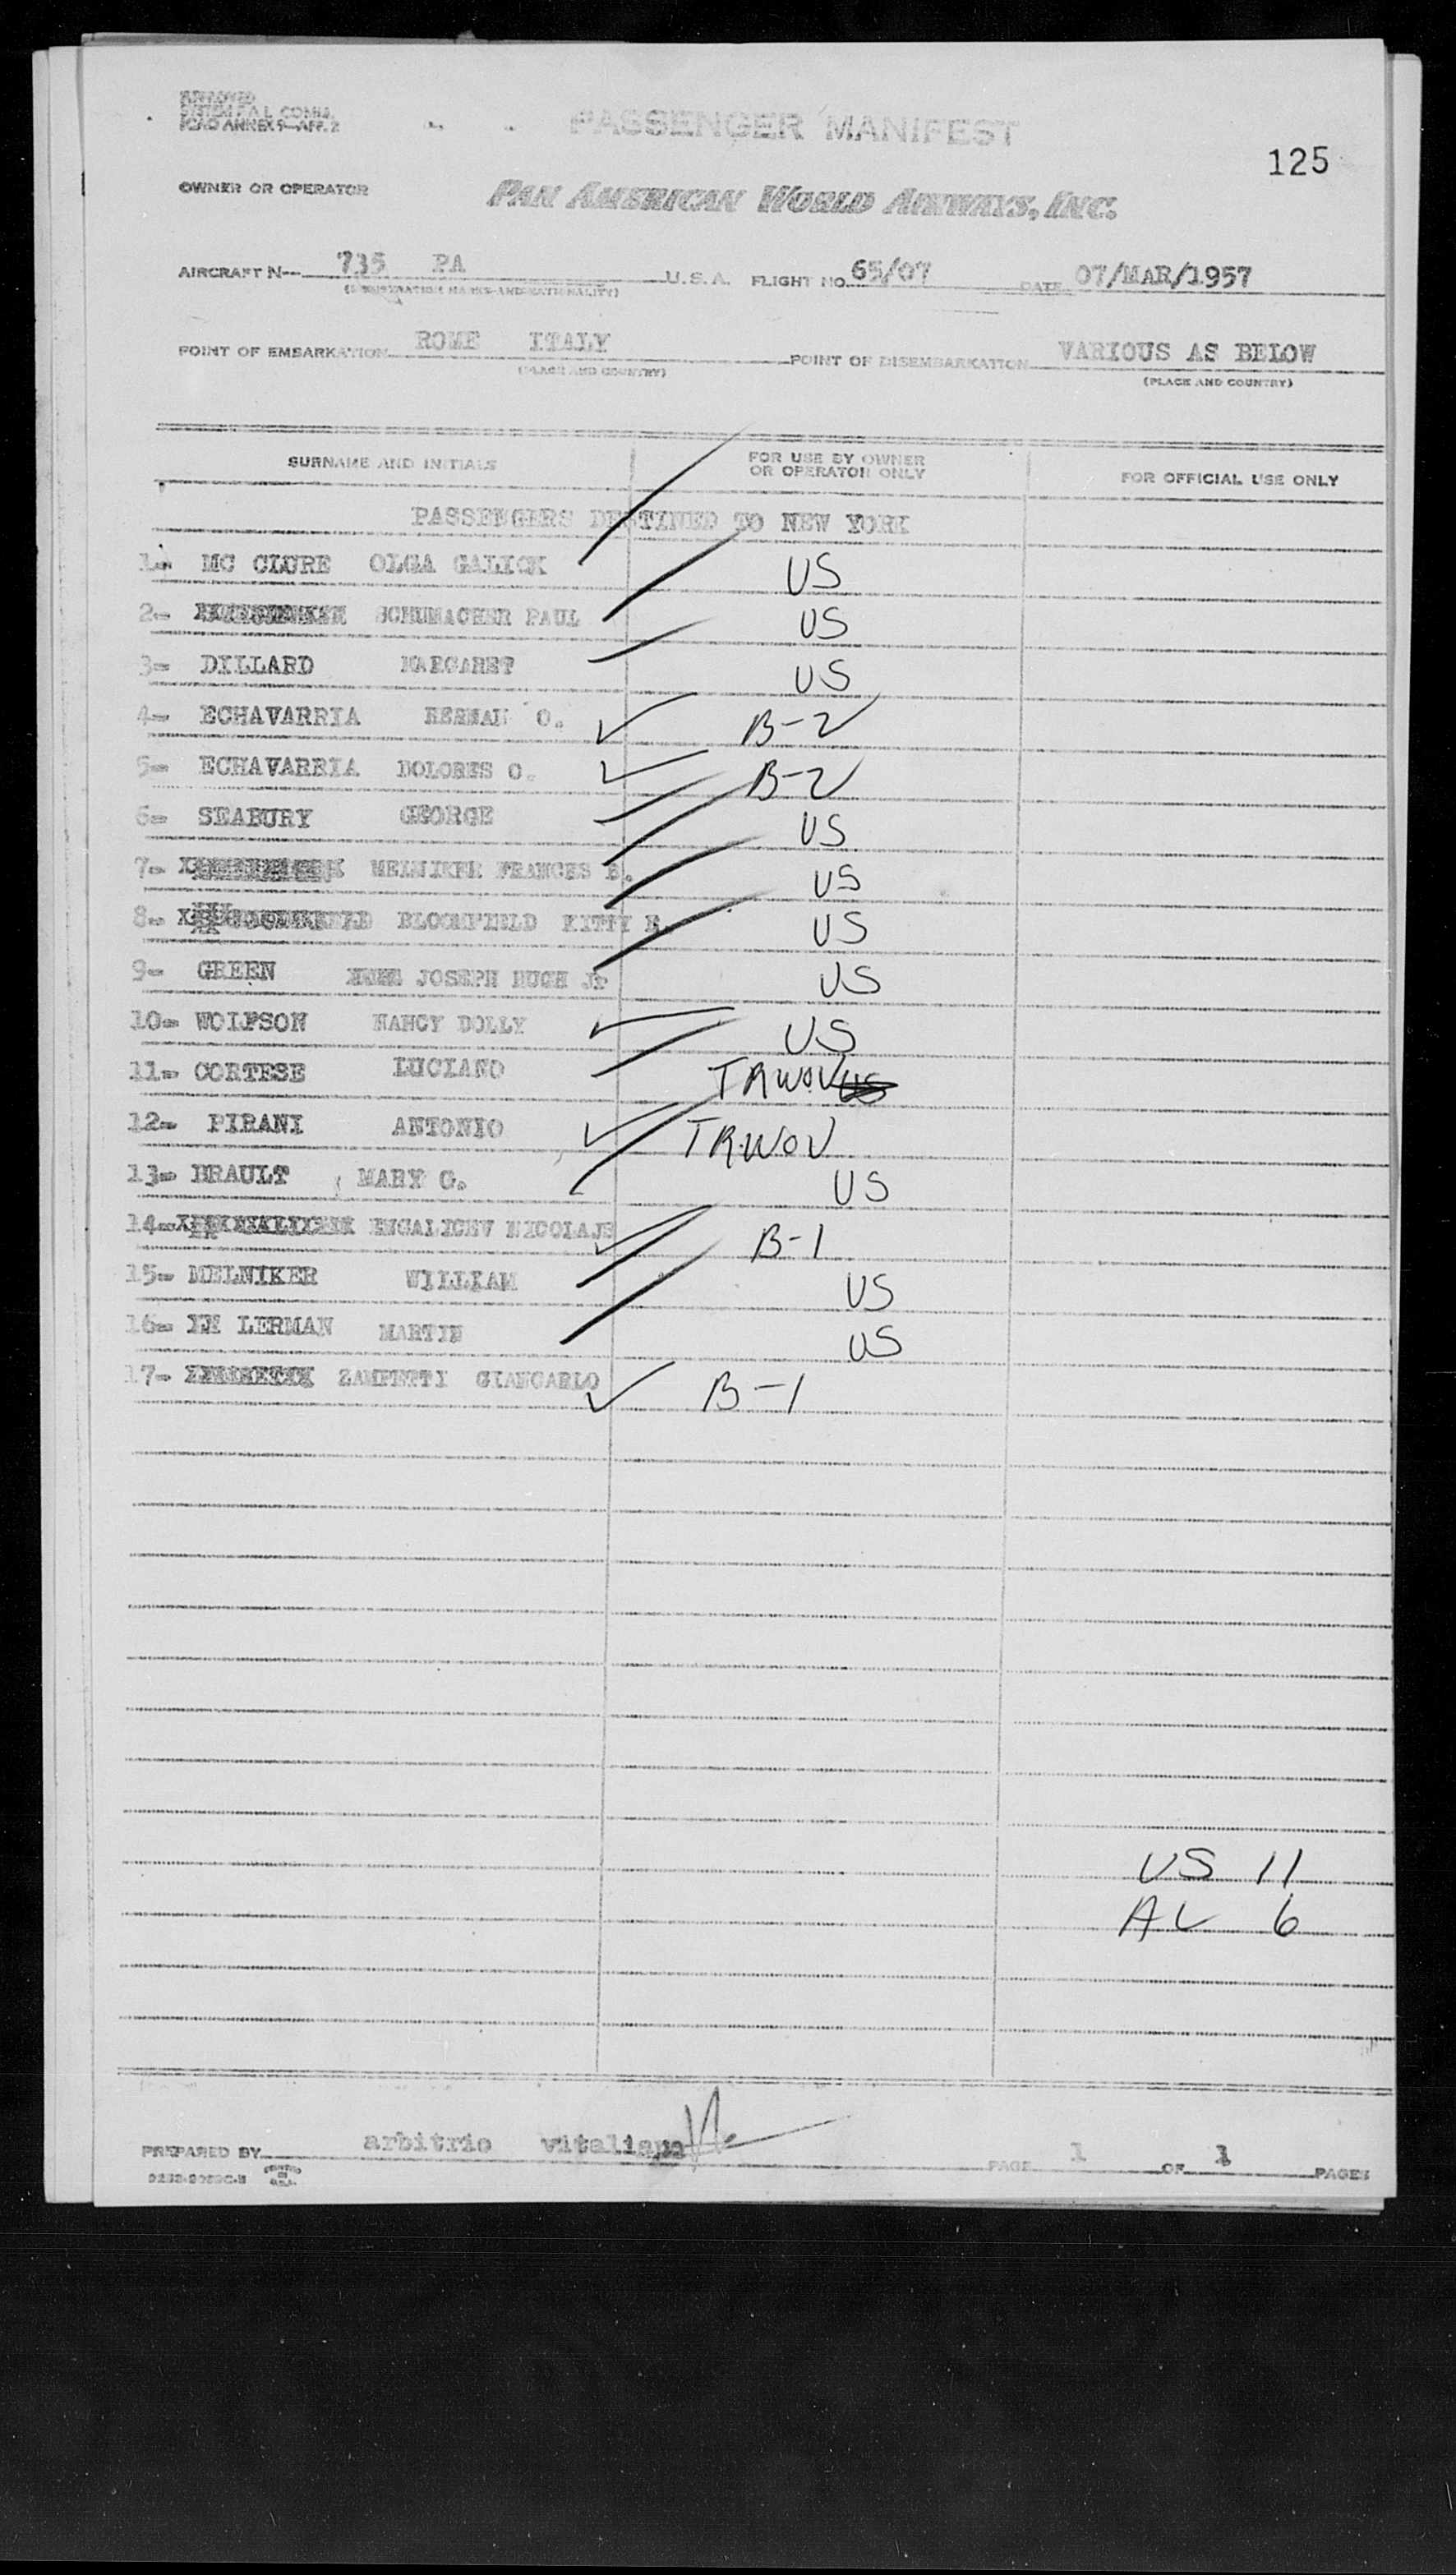 APPROVED
SYSTEM F.A.L. COMM.
ICAO ANNEX 9—APP. 2
PASSENGER MANIFEST
125
OWNER OR OPERATOR PAN AMERICAN WORLD AIRWAYS, INC.
AIRCRAFT N-- 735 PA U.S.A. FLIGHT NO. 65/07 DATE 07/MAR/1957
(REGISTRATION MARKS AND NATIONALITY)
POINT OF EMBARKATION ROME ITALY POINT OF DISEMBARKATION VARIOUS AS BELOW
(PLACE AND COUNTRY) (PLACE AND COUNTRY)
SURNAME AND INITIALS FOR USE BY OWNER OR OPERATOR ONLY FOR OFFICIAL USE ONLY
PASSENGERS DESTINED TO NEW YORK
1- MC CLURE OLGA GALICK US
2- SCHUMACHER PAUL US
3- DILLARD MARGARET US
4- ECHAVARRIA HERNAN O. B-2
5- ECHAVARRIA DOLORES O. B-2
6- SEABURY GEORGE US
7- MELNIKER FRANCES B. US
8- BLOOMFIELD KITTY R. US
9- GREEN JOSEPH HUGH Jr US
10- WOLFSON NANCY DOLLY US
11- CORTESE LUCIANO TRWOV US
12- PIRANI ANTONIO TRWOV
13- BRAULT MARY C. US
14- ENGALICEV NICOLAJS B-1
15- MELNIKER WILLIAM US
16- LERMAN MARTIN US
17- ZAMPETTI GIANCARLO B-1
US 11
AL 6
PREPARED BY arbitrio vitaliano PAGE 1 OF 1 PAGES